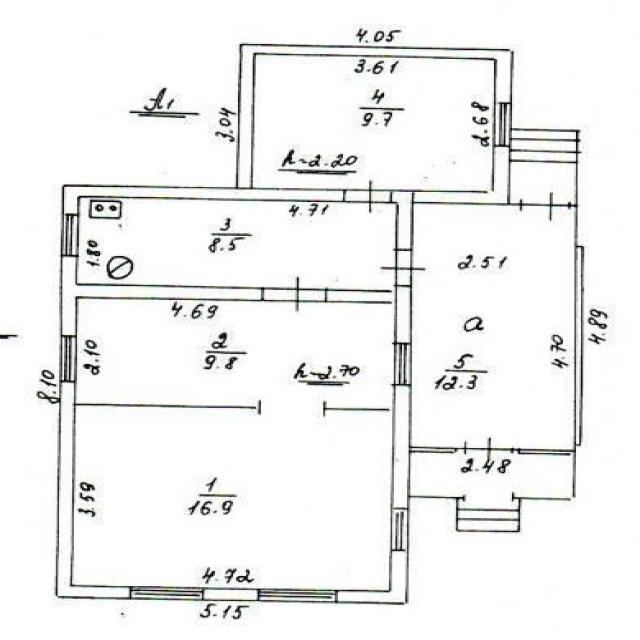 4.05
3.61
А1
3.04
4
9.7
2.68
h-2.20
4.71
3
8.5
1.80
2.51
4.69
2
9.8
2.10
h-2.70
а
5
12.3
4.70
4.89
8.10
2.48
3.59
1
16.9
4.72
5.15